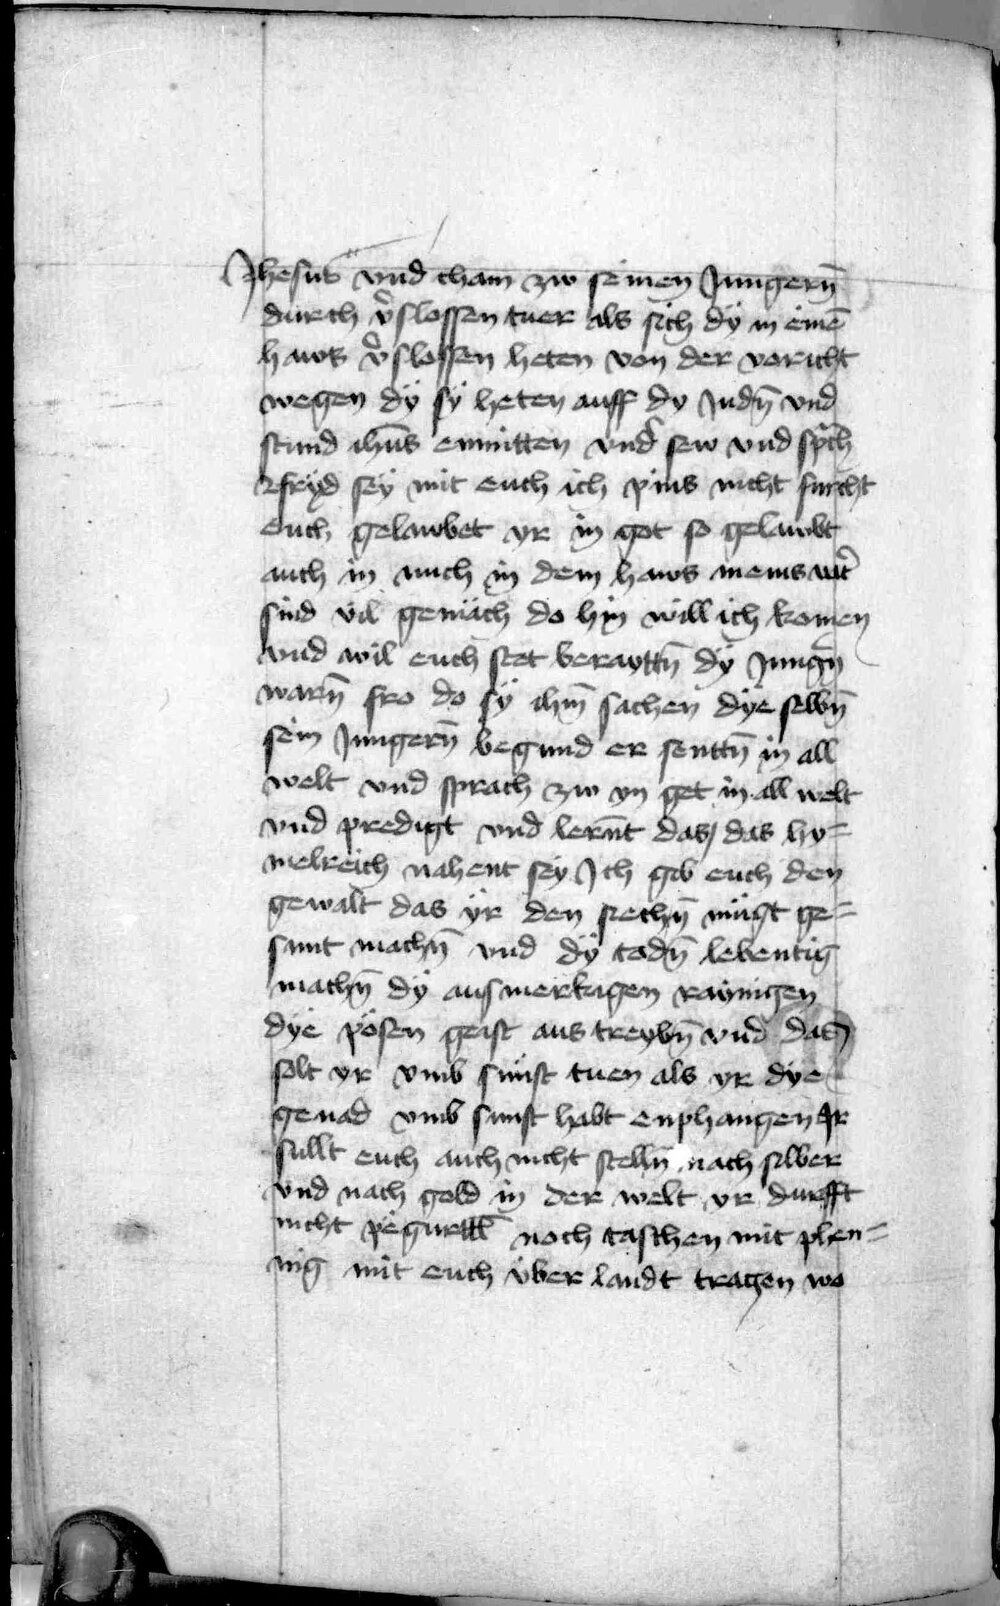 Jhesus vnd cham zw seinen Jungern̄
durch v̾slossen tuer als sich dÿ in eine͂
haws v̾slossen heten von der voricht
wegen dÿ sÿ heten auff dy Judn̄ vnd
stund ihūs enmitten vnd̾ sew vnd sp̾ch
fryd seÿ mit euch ich pins nicht furcht
euch gelawbet yr in got so gelawbt
auch in mich in dem haws meins vat̾
sind vil gemäch do hin will ich komen
vnd wil euch stet berayttn̄ dÿ Jungn̄
warn̄ fro do sÿ ihm̄ sachen dÿe selbn̄
sein Jungern̄ begund er senttn̄ in all
welt vnd sprach zw yn get in all welt
vnd predigt vnd lern̄t das das hy=
melreich nahent seÿ Ich gib euch den
gewalt das ÿr den siechn̄ mügt ge=
sunt machn̄ vnd dÿ todn̄ lebentig
machn̄ dÿ ausmerkigen raynigen
dÿe pösen geist aus treybn̄ vnd das
solt yr vmb sünst tuen als yr dÿe
genad vmb sunst habt enphangen Ir
sullt euch auch nicht stelln̄ nach silber
vnd nach gold in der welt yr durfft
nicht pegurttl̄ noch taschen mit phen=
nig mit euch über landt tragen wo